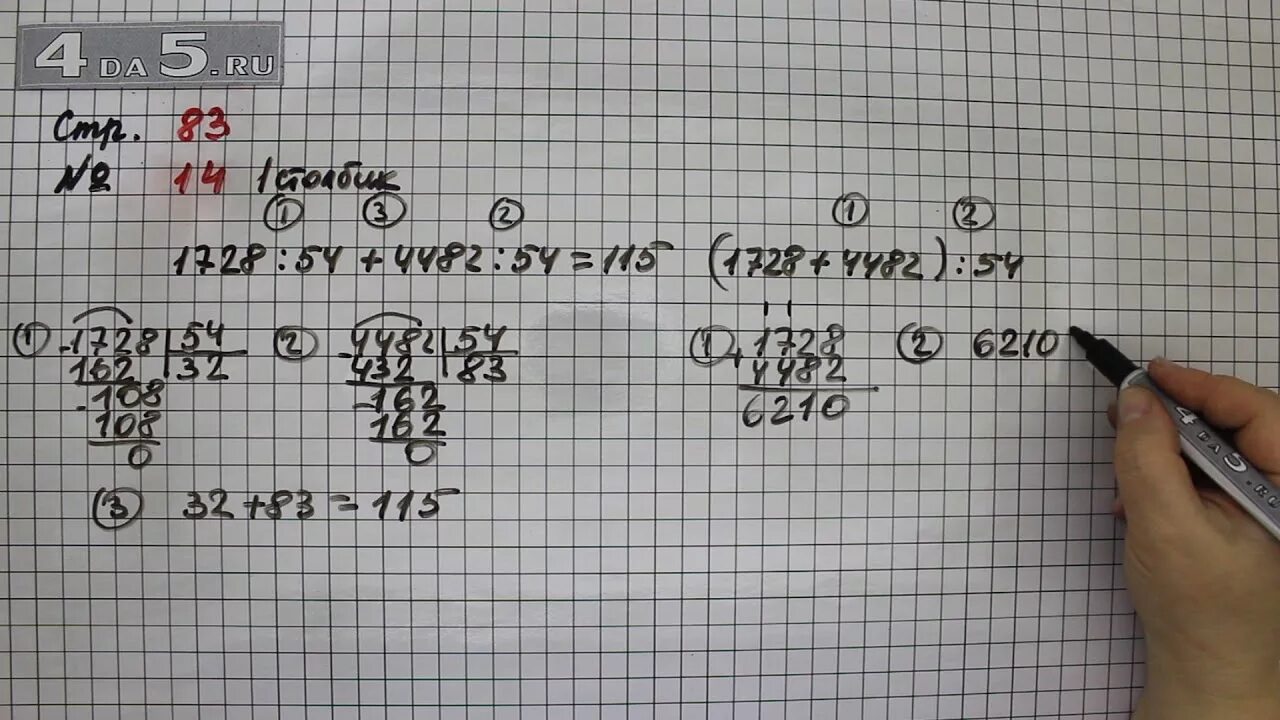 4DA5.RU
Стр. 83
№ 14 1 столбик
① ③ ②
1728 : 54 + 4482 : 54 = 115
① ②
(1728 + 4482) : 54
① - 1728 | 54
162 | 32
- 108
108
0
② - 4482 | 54
432 | 83
- 162
162
0
③ 32 + 83 = 115
① + 1728
4482
6210
② 6210
4DA5.RU